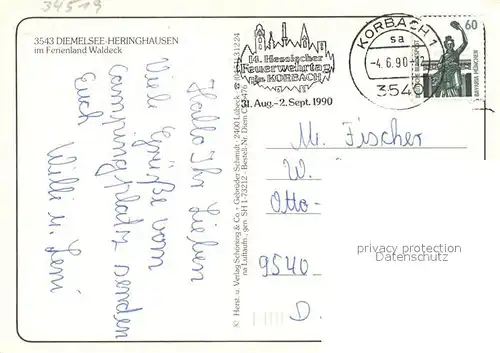 34519
3543 DIEMELSEE-HERINGHAUSEN
im Ferienland Waldeck
Hallo Ihr Lieben
Viele Grüße vom
Campingplatz senden
Euch Willi u. Leni
14. Hessischer
Feuerwehrtag
in KORBACH
31. Aug.-2. Sept. 1990
KORBACH 1
sa
-4.6.90-12
3540
60
DEUTSCHE BUNDESPOST
BAVARIA MÜNCHEN
M. Fischer
W.
Otto-
9540
D.
privacy protection
Datenschutz
© Herst. u. Verlag Schöning & Co + Gebrüder Schmidt · 2400 Lübeck
na Luftaufn.: gen. SH 1-73212 - Bestell-Nr. Diem